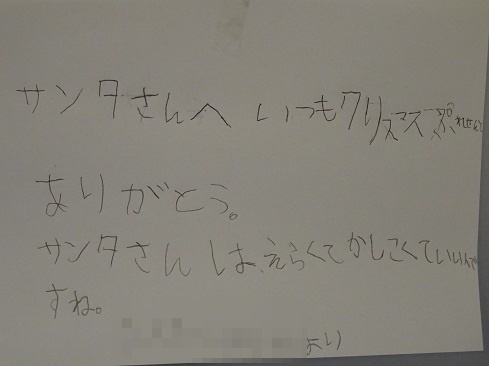 サンタさんへ いつもクリスマスプれせんと
ありがとう。
サンタさんは、えらくてかしこくていいんで
すね。
より